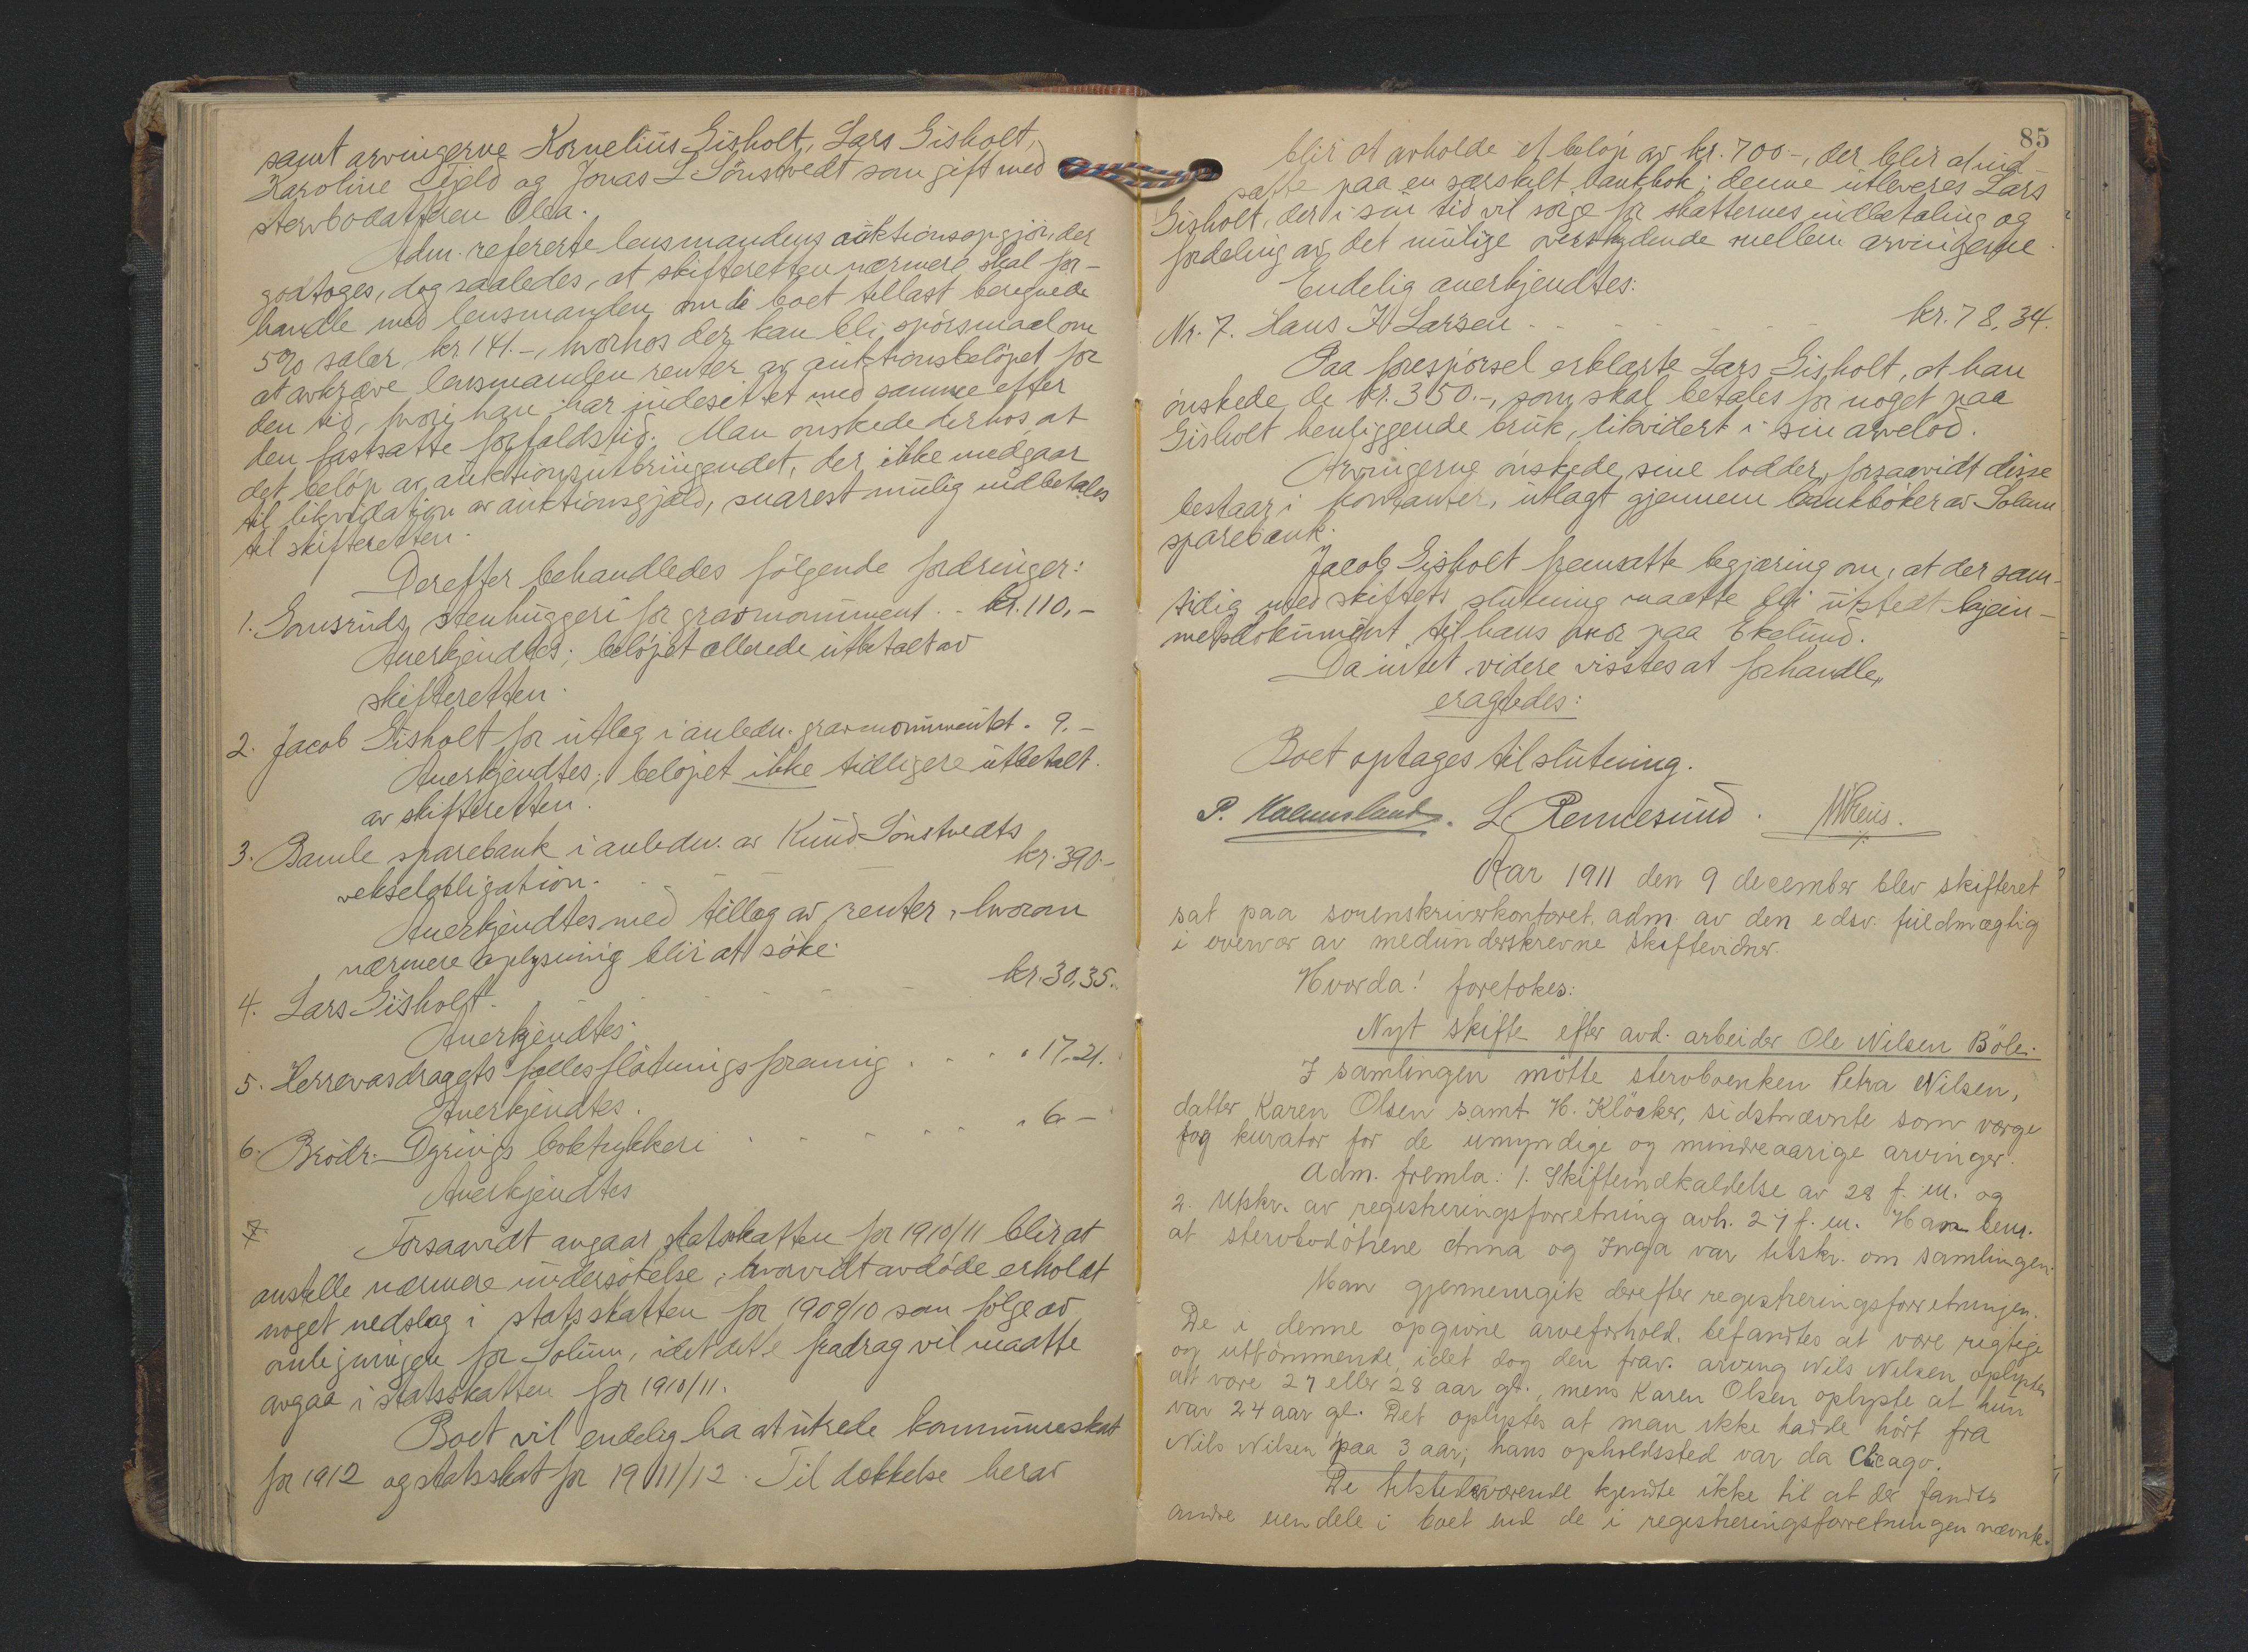 samt arvingerne Kornelius Gisholt, Lars Gisholt,
Karoline Fjeld og Jonas L Sönstvedt som gift med
stervbodatteren Olea.
Adm. refererte lensmandens auktionsopgjör, der
godtoges, dog saaledes, at skifteretten nærmere skal for-
handle med lensmanden om de boet tillast beregnede
5% salær, kr. 141.-, hvorhos der kan bli spörsmaal om
at avkræve lensmanden renter av auktionsbelöpet for
den tid, hvori han har indesittet med samme efter
den fastsatte forfaldstid. Man önskede derhos, at
det belöp av auktionsutbringendet, der ikke medgaar
til likvidation av auktionsgjæld, snarest mulig indbetales
til skifteretten.
Derefter behandledes fölgende fordringer:
1. Gousruds stenhuggeri for gravmonument . . kr. 110,-
Anerkjendtes; belöpet allerede utbetalt av
skifteretten.
2. Jacob Gisholt for utlæg i anledn. gravmonumentet . 9.-
Anerkjendtes; belöpet ikke tidligere utbetalt
av skifteretten.
3. Bamle sparebank i anledn. av Knud Sönstvedts
vekselobligation. kr. 390.-
Anerkjendtes med tillæg av renter, hvorom
nærmere oplysning blir at söke.
4. Lars Gisholt. kr. 30,35.
Anerkjendtes.
5. Herrevasdragets fællesflötningsforening . . . . " 17,21.
Anerkjendtes.
6. Brödr. Dyrings boktrykkeri . . . . . " 6 -
Anerkjendtes
7. Forsaavidt angaar statsskatten for 1910/11 blir at
anstille nærmere undersökelse, hvorvidt avdöde erholdt
noget nedslag i statsskatten for 1909/10 som fölge av
omligningen for Solum, idet dette fradrag vil maatte
avgaa i statsskatten for 1910/11.
Boet vil endelig ha at utrede kommuneskat
for 1912 og statsskat for 1911/12. Til dækkelse herav
85
blir at avholde et belöp av kr. 700.-, der blir at ind-
sætte paa en særskilt bankbok; denne utleveres Lars
Gisholt, der i sin tid vil sörge for skatternes indbetaling og
fordeling av det mulige overskydende mellem arvingerne
Endelig anerkjendtes:
Nr. 7. Hans H Larsen . . . . . . kr. 78,34.
Paa forespörsel erklærte Lars Gisholt, at han
önskede de kr. 350.-, som skal betales for noget paa
Gisholt henliggende bruk, likvidert i sin arvelod.
Arvingerne önskede sine lodder, forsaavidt disse
bestaar i kontanter, utlagt gjennem bankböker av Solum
sparebank.
Jacob Gisholt fremsatte begjæring om, at der sam-
tidig med skiftets slutning maatte bli utstedt hjem-
melsdokument til hans mor paa Ekelund.
Da intet videre visstes at forhandle,
eragtedes:
Boet optages til slutning.
P. Kalmsland. L Rennesund. NKeus.
Aar 1911 den 9 december blev skifteret
sat paa sorenskriverkontoret, adm. av den edsv. fuldmægtig
i overvær av medunderskrevne skiftevidner.
Hvorda! foretokes:
Nyt skifte efter avd. arbeider Ole Nilsen Böle.
I samlingen mötte stervboenken Petra Nilsen,
datter Karen Olsen samt H. Klöcker, sidstnævnte som værge
og kurator for de umyndige og mindreaarige arvinger.
Adm. fremla: 1. Skifteindkaldelse av 28 f. m. og
2. Utskr. av registreringsforretning avh. 27 f. m. Han bem.
at stervbodötrene Anna og Inga var tilskr. om samlingen.
Man gjennemgik derefter registreringsforretningen.
De i denne opgivne arveforhold. befandtes at være rigtige
og uttömmende, idet dog den frav. arving Nils Nilsen oplystes
at være 27 eller 28 aar gl., mens Karen Olsen oplyste at hun
var 24 aar gl. Det oplystes at man ikke hadde hört fra
Nils Nilsen paa 3 aar; hans opholdssted var da Chicago.
De tilstedeværende kjendte ikke til at der fandts
andre eiendele i boet end de i registreringsforretningen nævnte.